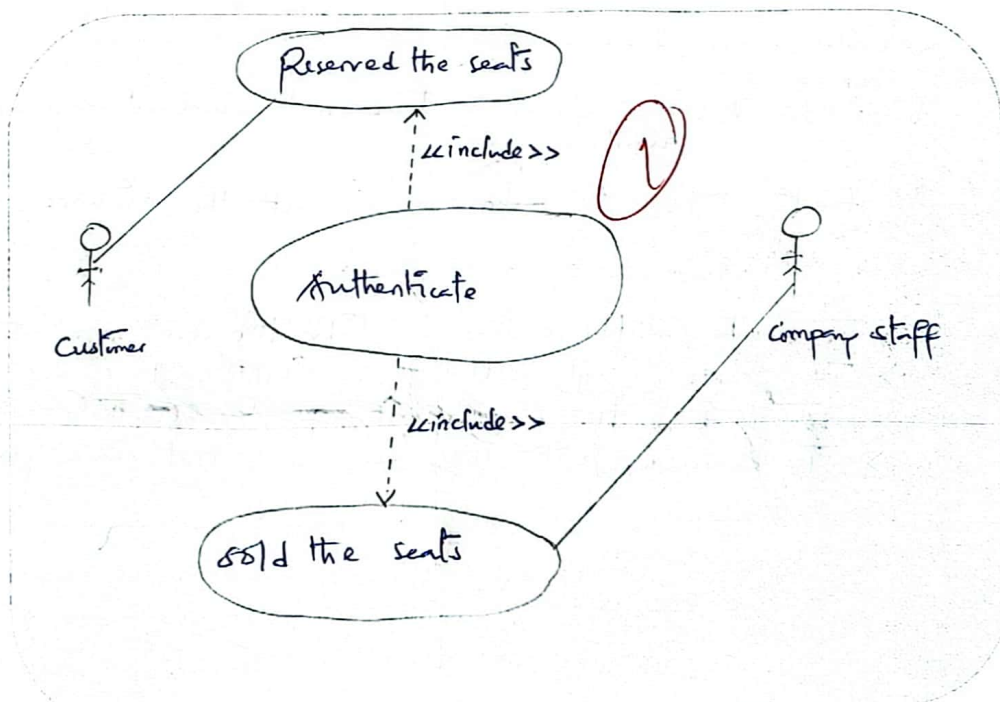 Reserved the seats
<<include>>
1
Authenticate
Customer
Company staff
<<include>>
sold the seats